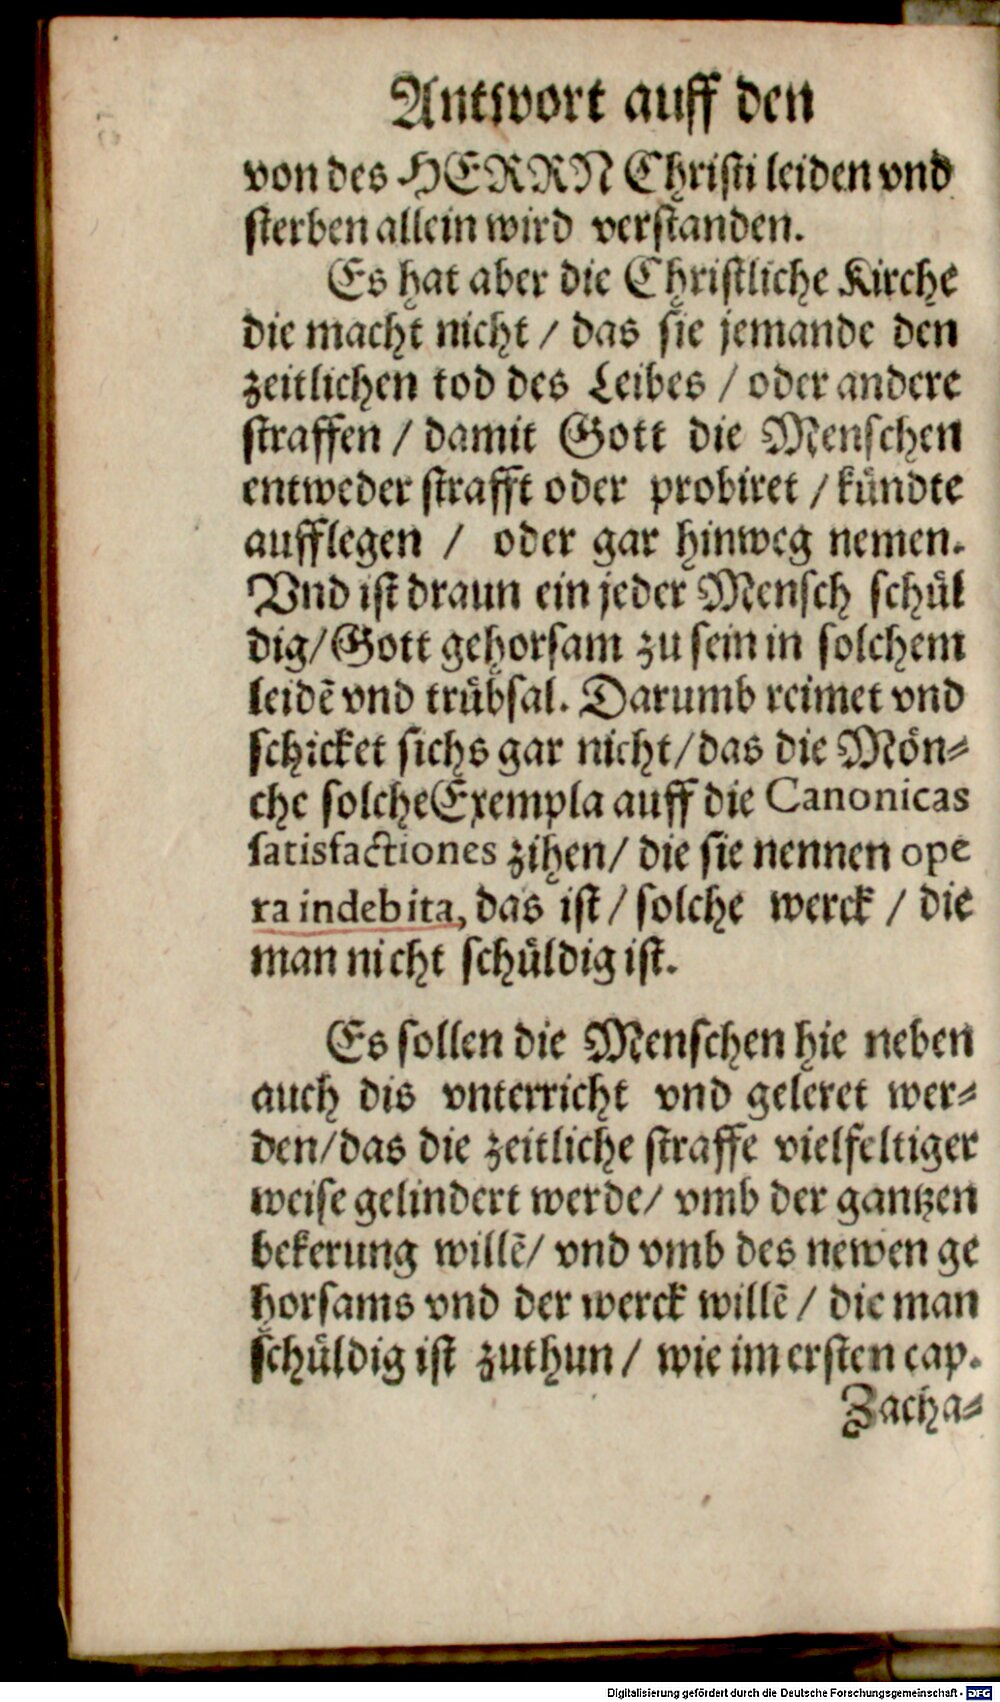 Antwort auff den
von des HERRN Christi leiden vnd
sterben allein wird verstanden.
Es hat aber die Christliche Kirche
die macht nicht / das sie jemande den
zeitlichen tod des Leibes / oder andere
straffen / damit Gott die Menschen
entweder strafft oder probiret / kündte
aufflegen / oder gar hinweg nemen.
Vnd ist draun ein jeder Mensch schül
dig/ Gott gehorsam zu sein in solchem
leidē vnd trübsal. Darumb reimet vnd
schicket sichs gar nicht/ das die Mön⸗
che solche Exempla auff die Canonicas
satisfactiones zihen/ die sie nennen ope
ra indebita, das ist / solche werck / die
man nicht schüldig ist.
Es sollen die Menschen hie neben
auch dis vnterricht vnd geleret wer⸗
den/ das die zeitliche straffe vielfeltiger
weise gelindert werde/ vmb der gantzen
bekerung willē/ vnd vmb des newen ge
horsams vnd der werck willē / die man
schüldig ist zuthun / wie im ersten cap.
Zacha⸗
Digitalisierung gefördert durch die Deutsche Forschungsgemeinschaft - DFG